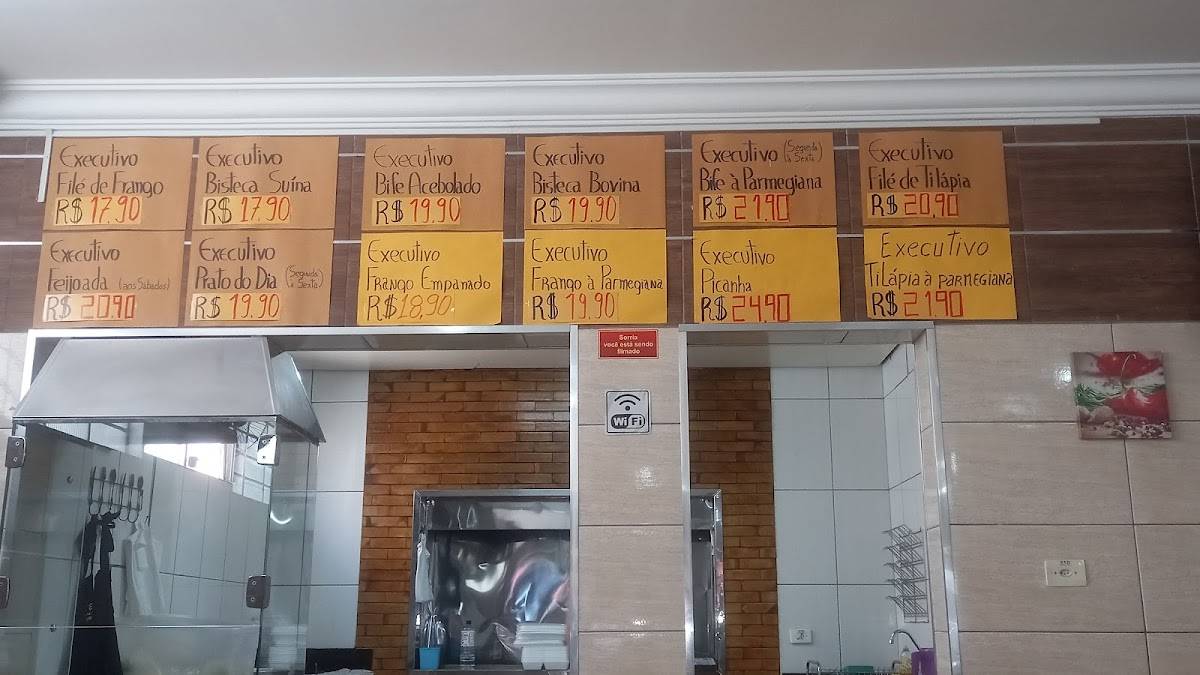 Executivo
Filé de Frango
R$ 17,90
Executivo
Bisteca Suína
R$ 17,90
Executivo
Bife Acebolado
R$ 19,90
Executivo
Bisteca Bovina
R$ 19,90
Executivo (Segunda à Sexta)
Bife à Parmegiana
R$ 21,90
Executivo
Filé de Tilápia
R$ 20,90
Executivo
Feijoada (aos Sábados)
R$ 20,90
Executivo
Prato do Dia (Segunda à Sexta)
R$ 19,90
Executivo
Frango Empanado
R$ 18,90
Executivo
Frango à Parmegiana
R$ 19,90
Executivo
Picanha
R$ 24,90
Executivo
Tilápia à Parmegiana
R$ 21,90
Sorria
você está sendo
filmado
Wi Fi